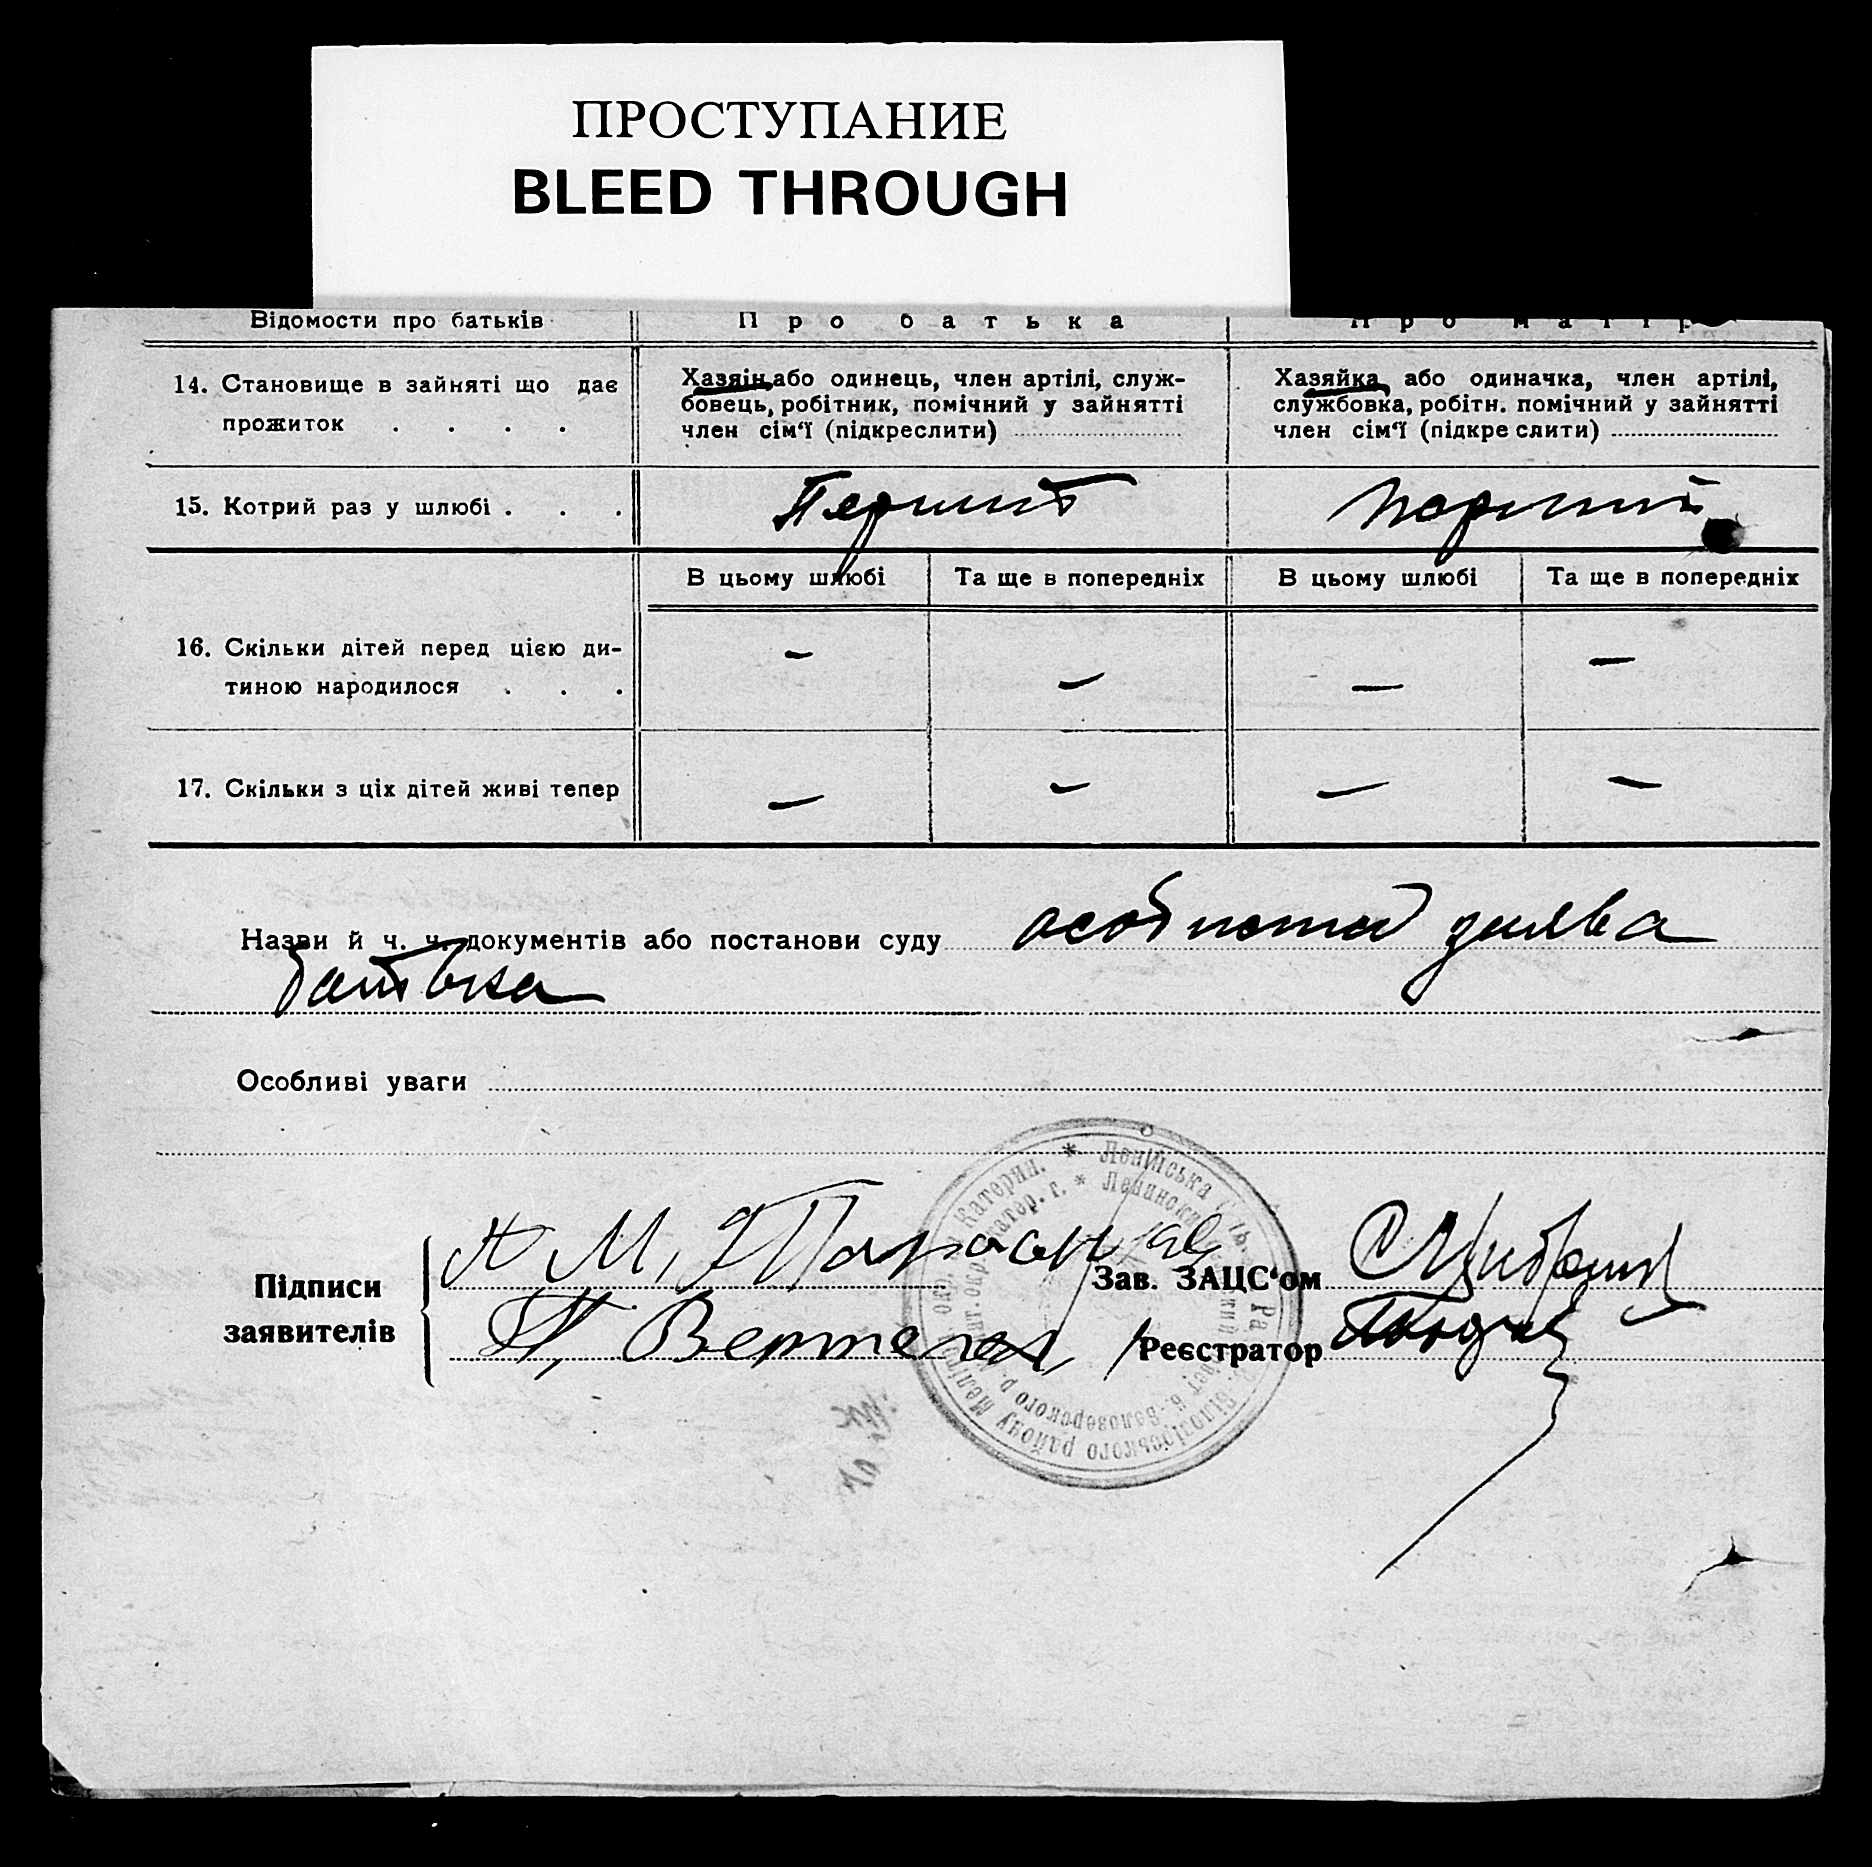 ПРОСТУПАНИЕ
BLEED THROUGH
Відомости про батьків Про батька Про матір
14. Становище в зайняті що дає
прожиток . . . .
Хазяін або одинець, член артілі, служ-
бовець, робітник, помічний у зайнятті
член сім‘ї (підкреслити)
Хазяйка або одиначка, член артілі,
службовка, робітн. помічний у зайнятті
член сім‘ї (підкре слити)
15. Котрий раз у шлюбі . . . Перший перший
В цьому шлюбі Та ще в попередніх В цьому шлюбі Та ще в попередніх
16. Скільки дітей перед цією ди-
тиною народилося . . . – – – –
17. Скільки з ціх дітей живі тепер – – – –
Назви й ч. ч. документів або постанови суду особиста заява
батька
Особливі уваги
Підписи
заявителів
А М,
Зав. ЗАЦС‘ом
Реєстратор
* Ленінська Білозірського району Катерин.
* Ленинский Б.-Белозерского р.